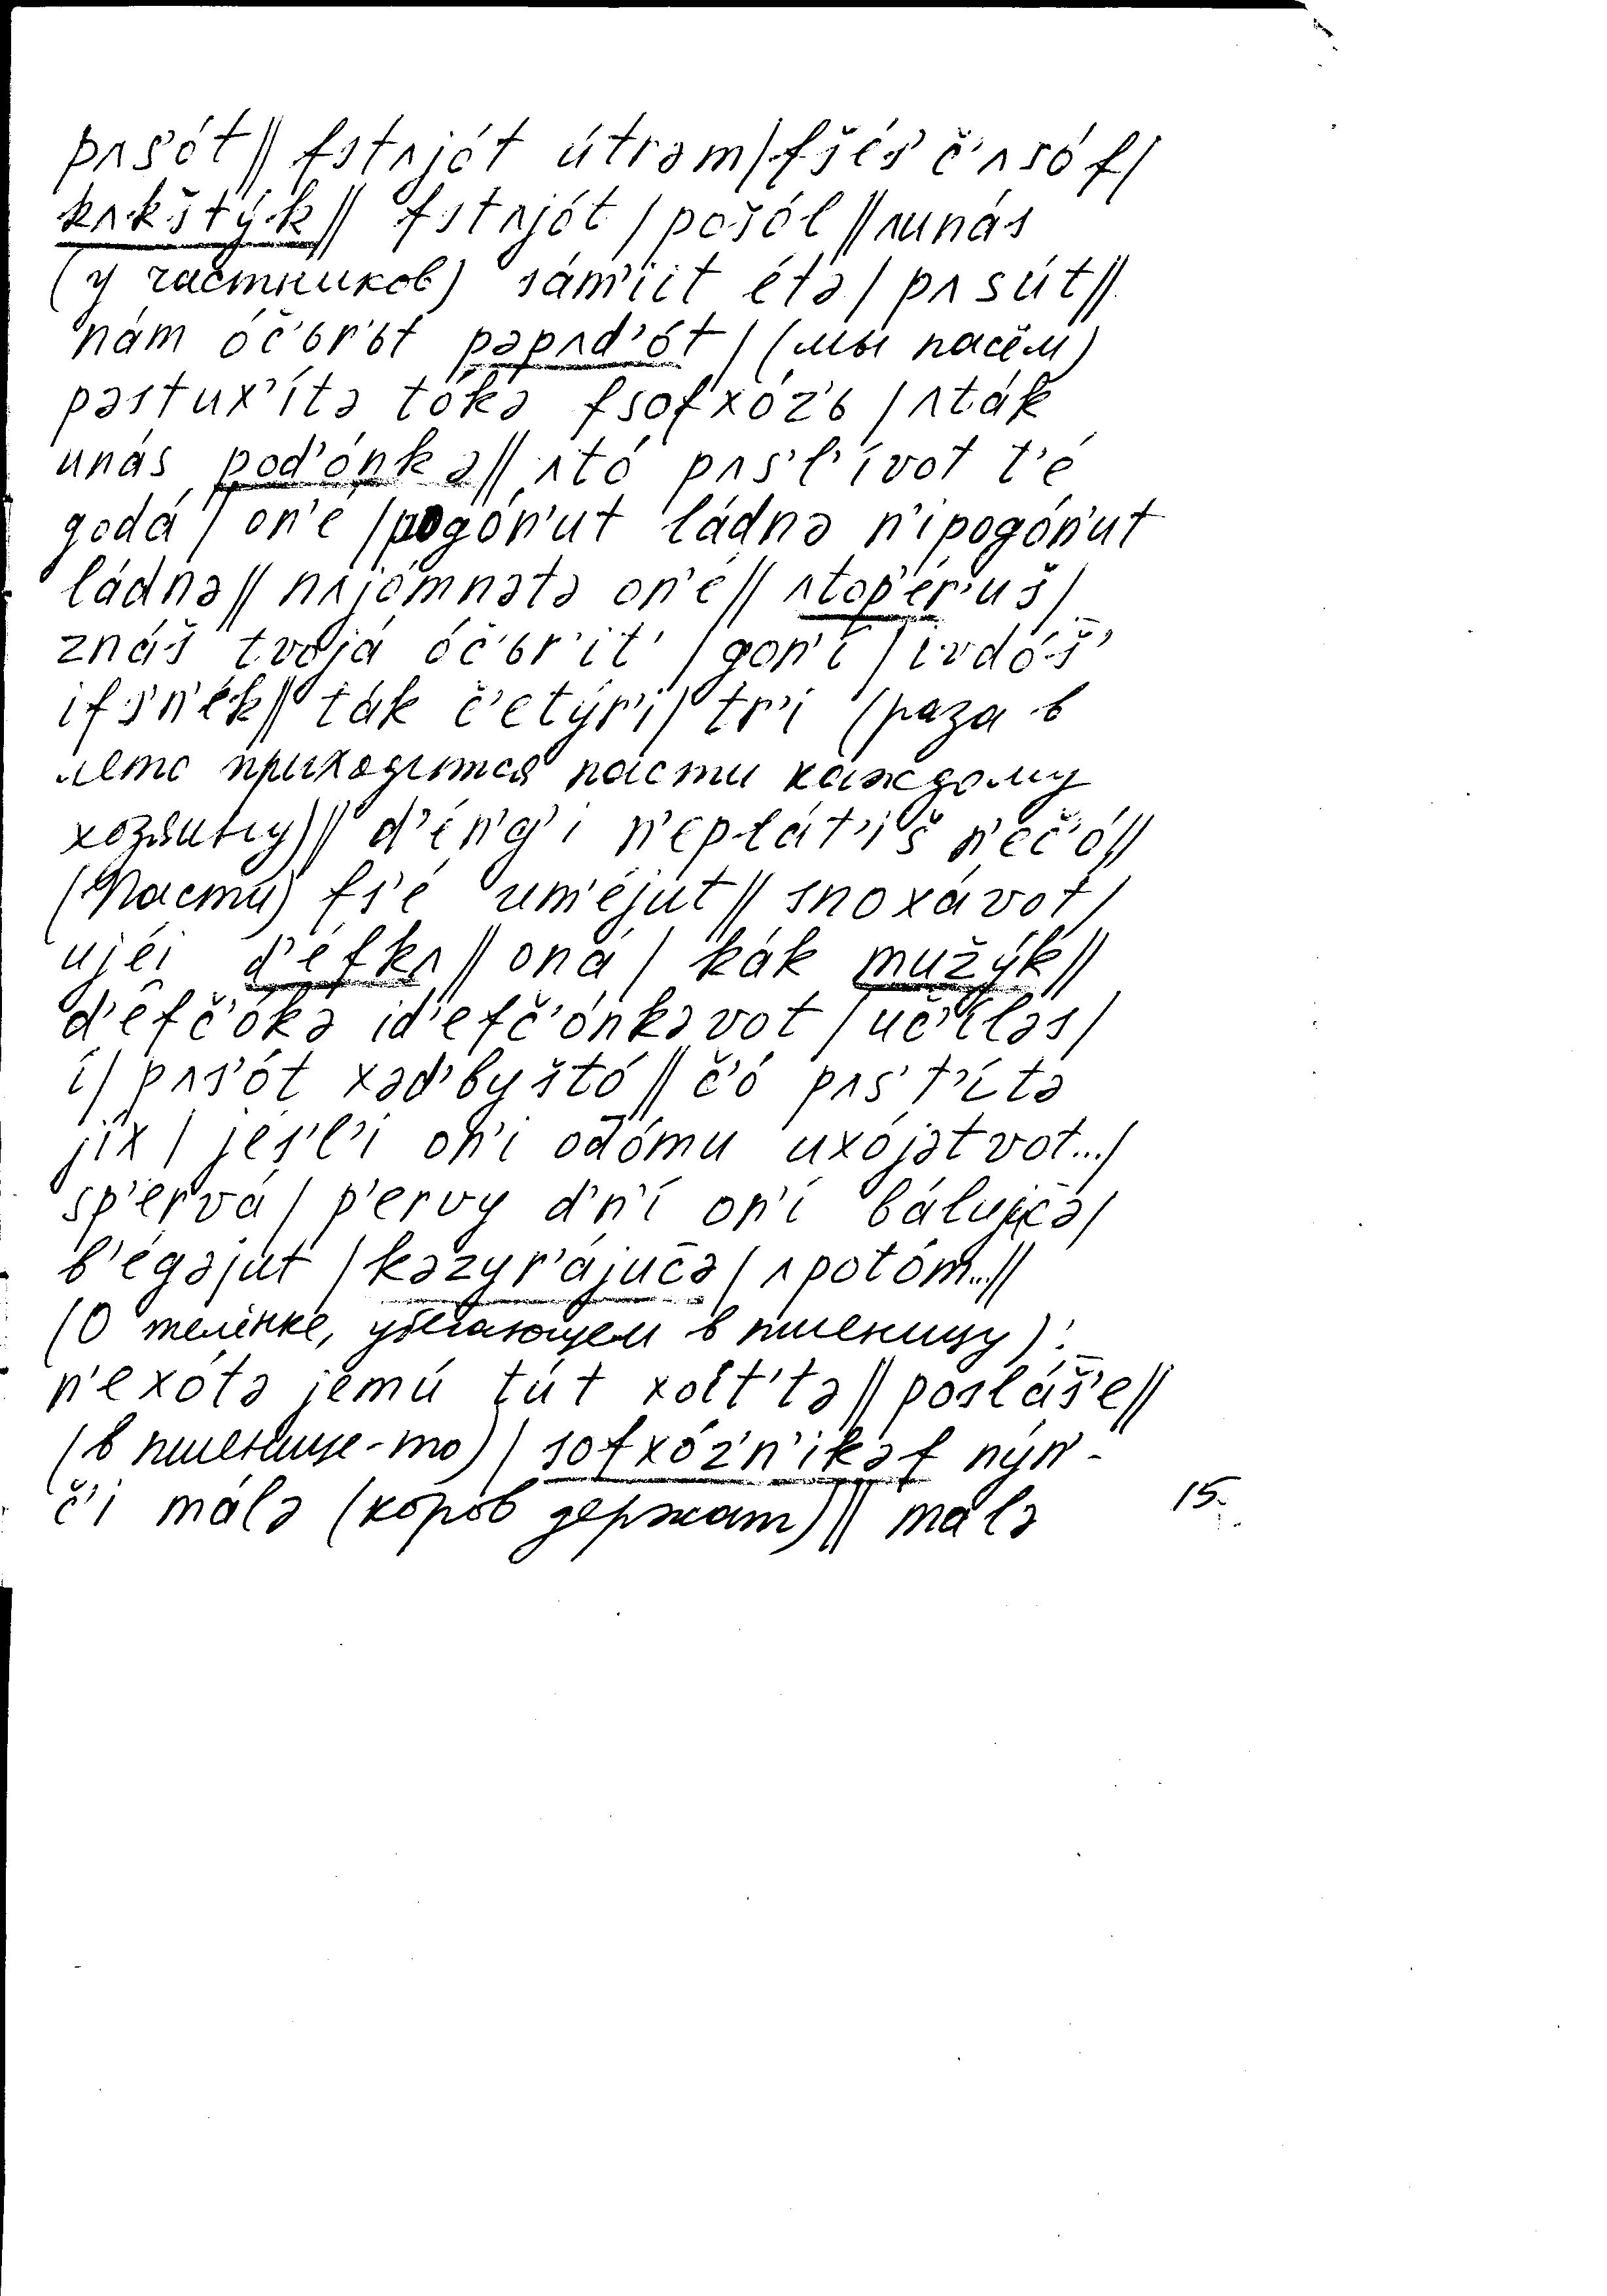 pʌs'ót // fstʌjót útrəm / fšés' č'ʌsóf /
kʌkštýk // fstʌjót / pošól // ʌunás
(у частников) sám'iit étə / pʌsút //
nám óč'ьr'ьt pəpʌd'ót / (мы пасём)
pəstux'ítə tókə fsofxóz'ь / ʌták
unás pod'ónkə // ʌtó pʌs'l'ívot t'é
godá / on'é / pogón'ut ládnə n'ipogón'ut
ládnə // nʌjómnətə on'é // ʌtop'ér'uš /
znáš tvojá óč'ьr'it' / gon'í / ivdóš̄'
ifs'n'ék // ták č'etýr'i / tr'i (раза в
лето приходится пасти каждому
хозяину) // d'én'g'i n'eplát'iš n'eč'ó //
(Пасти) fs'é um'éjut // snoxávot /
ujéi d'éfkʌ // oná / kák mužýk //
d'efč'ókə id'efč'ónkəvot / uč'íləs /
i / pʌs'ót xəd'byštó // č'ó pʌs't'ítə
jíx / jés'l'i on'i od̄ómu uxójətvot... /
sp'ervá / p'ervy d'n'í on'í bálujuc̄ə /
b'égəjut / kəzyr'ájuc̄ə / ʌpotóm... //
(О телёнке, убегающем в пшеницу):
n'exótə jemú tút xoit'tə // posláš̄'e //
(в пшенице-то) / sofxóz'n'ikəf nýn'-
č'i málə (коров держат) // málə
15.